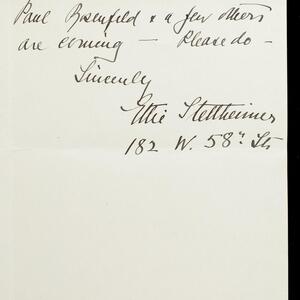 Paul Rosenfeld & a few others
are coming — Please do —
Sincerely
Ettie Stettheimer
182 W. 58" St